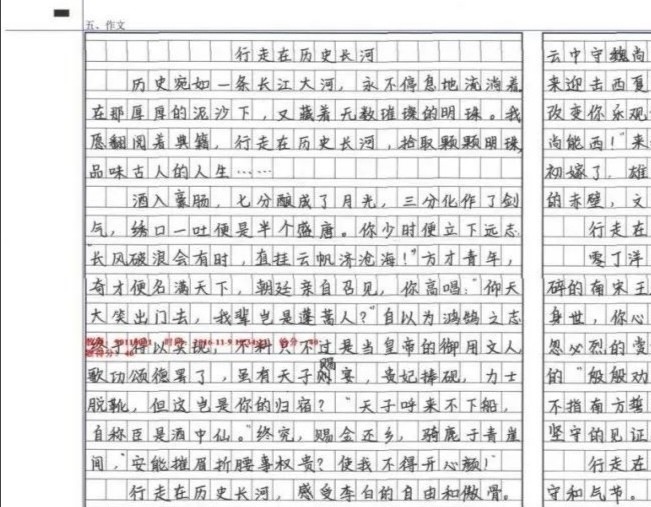 五、作文
行走在历史长河
历史宛如一条长江大河，永不停息地流淌着
在那厚厚的泥沙下，又藏着无数璀璨的明珠。我
愿翻阅着典籍，行走在历史长河，拾取颗颗明珠，
品味古人的人生……
酒入豪肠，七分酿成了月光，三分化作了剑
气，绣口一吐便是半个盛唐。你少时便立下远志
"长风破浪会有时，直挂云帆济沧海！"方才青年，
奇才便名满天下，朝廷亲自召见，你高唱："仰天
大笑出门去，我辈岂是蓬蒿人？"自以为鸿鹄之志
终于得以实现，不料只不过是当皇帝的御用文人，
歌功颂德罢了，虽有天子赐宴，贵妃捧砚，力士
脱靴，但这岂是你的归宿？"天子呼来不下船，
自称臣是酒中仙。"终究，赐金还乡，骑鹿于青崖
间，"安能摧眉折腰事权贵？使我不得开心颜！"
行走在历史长河，感受李白的自由和傲骨。
云中守魏尚
来迎击西夏
改变你乐观
尚能西！"来
初嫁了，雄
的赤壁，文
行走在
零丁洋
碎的南宋王
身世，你心
忽必烈的赏
的"殷殷劝
不指南方誓
坚守的见证
行走在
守和气节。